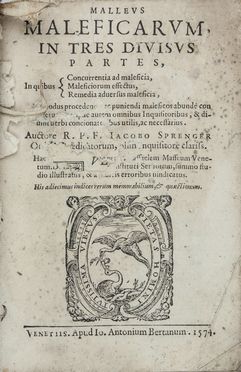 MALLEVS
MALEFICARVM,
IN TRES DIVISVS
PARTES,
In quibus
Concurrentia ad maleficia,
Maleficiorum effectus,
Remedia aduersus maleficia,
modus procedendi puniendi maleficos abundè con
autem omnibus Inquisitoribus, & di-
uini verbi concionatoribus vtilis, ac necessarius.
Auctore R. P. F. IACOBO SPRENGER
Inquisitore clariss.
Massæum Vene-
tum summo stu-
dio illustratus, & erroribus vindicatus.
His adiecimus indices rerum memorabilium, & quæstionum.
VENETIIS. Apud Io. Antonium Bertanum. 1574.